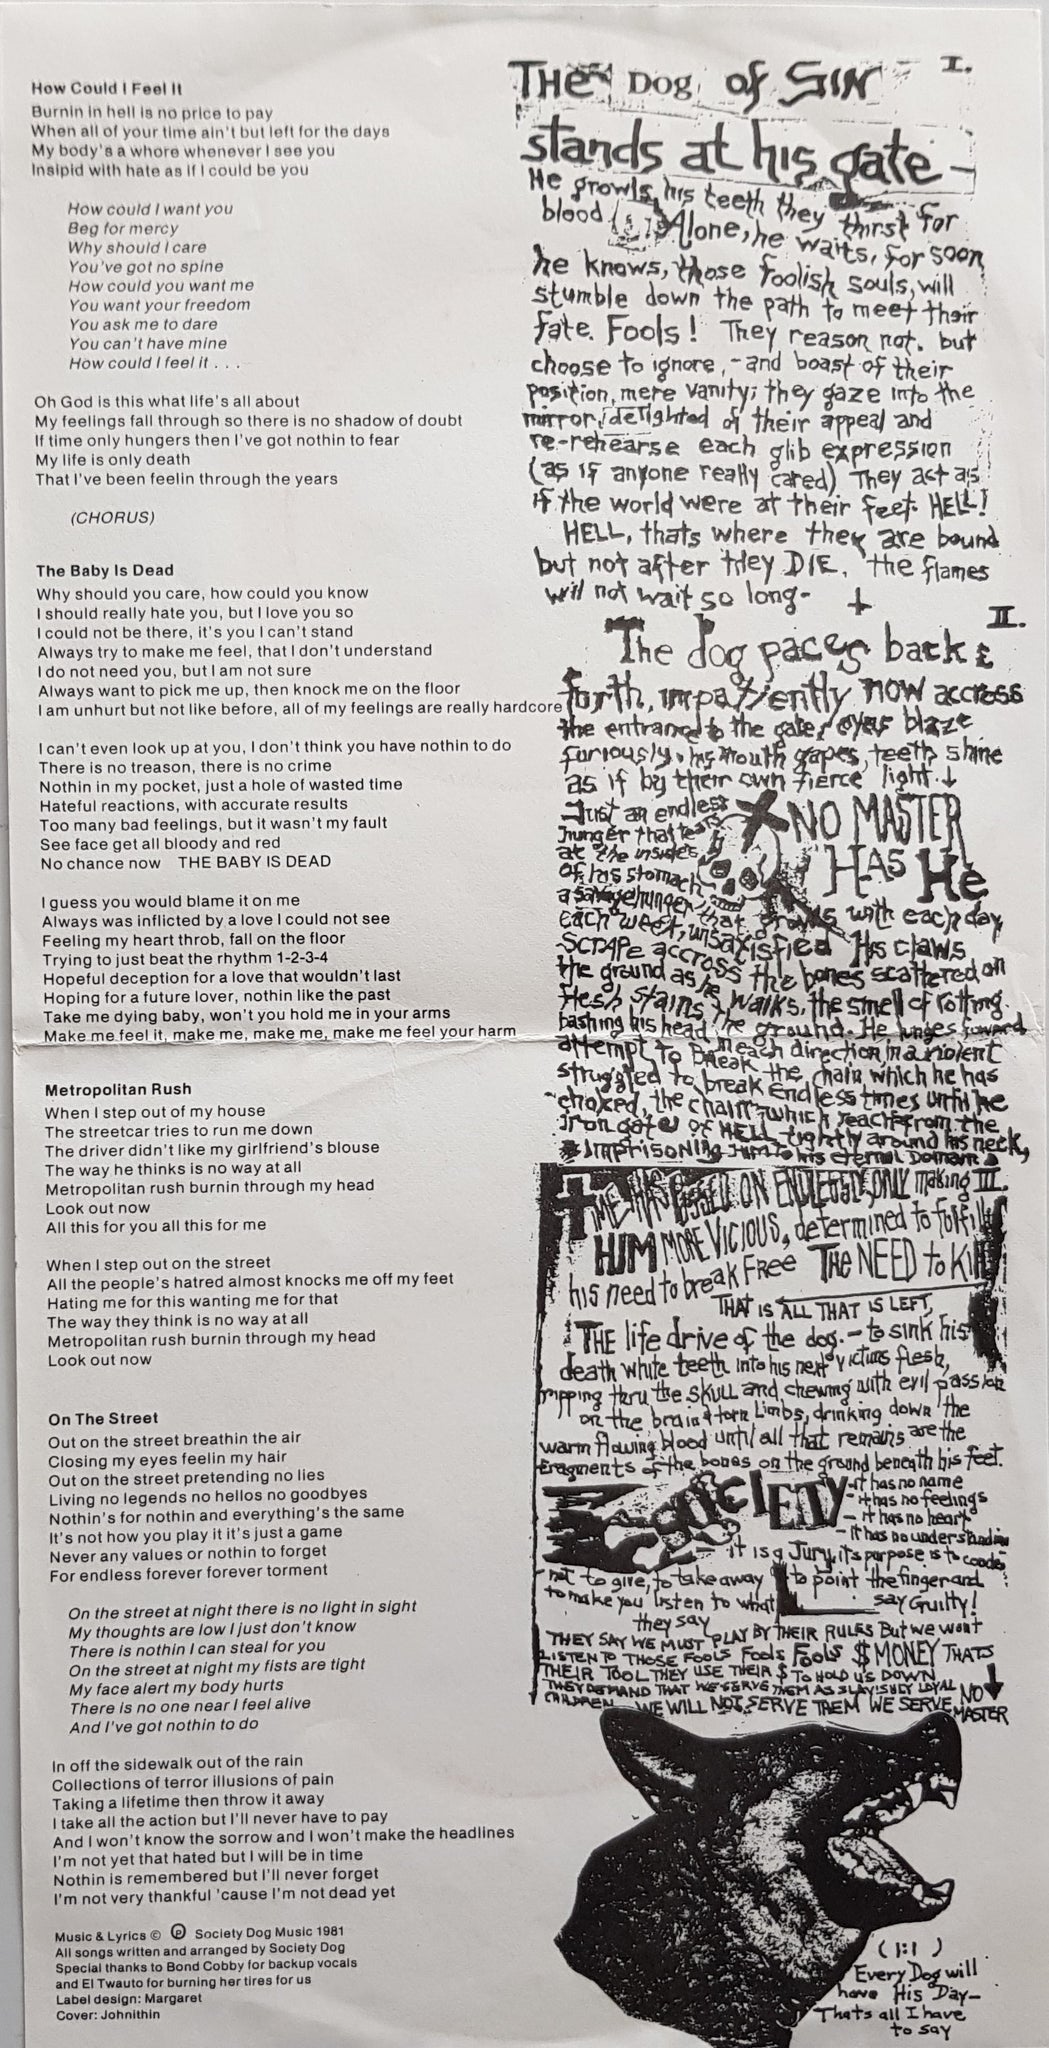 How Could I Feel It
Burnin in hell is no price to pay
When all of your time ain't but left for the days
My body's a whore whenever I see you
Insipid with hate as if I could be you
How could I want you
Beg for mercy
Why should I care
You've got no spine
How could you want me
You want your freedom
You ask me to dare
You can't have mine
How could I feel it . . .
Oh God is this what life's all about
My feelings fall through so there is no shadow of doubt
If time only hungers then I've got nothin to fear
My life is only death
That I've been feelin through the years
(CHORUS)
The Baby Is Dead
Why should you care, how could you know
I should really hate you, but I love you so
I could not be there, it's you I can't stand
Always try to make me feel, that I don't understand
I do not need you, but I am not sure
Always want to pick me up, then knock me on the floor
I am unhurt but not like before, all of my feelings are really hardcore
I can't even look up at you, I don't think you have nothin to do
There is no treason, there is no crime
Nothin in my pocket, just a hole of wasted time
Hateful reactions, with accurate results
Too many bad feelings, but it wasn't my fault
See face get all bloody and red
No chance now THE BABY IS DEAD
I guess you would blame it on me
Always was inflicted by a love I could not see
Feeling my heart throb, fall on the floor
Trying to just beat the rhythm 1-2-3-4
Hopeful deception for a love that wouldn't last
Hoping for a future lover, nothin like the past
Take me dying baby, won't you hold me in your arms
Make me feel it, make me, make me, make me feel your harm
Metropolitan Rush
When I step out of my house
The streetcar tries to run me down
The driver didn't like my girlfriend's blouse
The way he thinks is no way at all
Metropolitan rush burnin through my head
Look out now
All this for you all this for me
When I step out on the street
All the people's hatred almost knocks me off my feet
Hating me for this wanting me for that
The way they think is no way at all
Metropolitan rush burnin through my head
Look out now
On The Street
Out on the street breathin the air
Closing my eyes feelin my hair
Out on the street pretending no lies
Living no legends no hellos no goodbyes
Nothin's for nothin and everything's the same
It's not how you play it it's just a game
Never any values or nothin to forget
For endless forever forever torment
On the street at night there is no light in sight
My thoughts are low I just don't know
There is nothin I can steal for you
On the street at night my fists are tight
My face alert my body hurts
There is no one near I feel alive
And I've got nothin to do
In off the sidewalk out of the rain
Collections of terror illusions of pain
Taking a lifetime then throw it away
I take all the action but I'll never have to pay
And I won't know the sorrow and I won't make the headlines
I'm not yet that hated but I will be in time
Nothin is remembered but I'll never forget
I'm not very thankful 'cause I'm not dead yet
Music & Lyrics © ℗ Society Dog Music 1981
All songs written and arranged by Society Dog
Special thanks to Bond Cobby for backup vocals
and El Twauto for burning her tires for us
Label design: Margaret
Cover: Johnithin
I.
THE Dog of SIN
stands at his gate -
He growls, his teeth they thirst for
blood Alone, he waits, for soon
he knows, those foolish souls, will
stumble down the path to meet their
fate. Fools! They reason not, but
choose to ignore, - and boast of their
position, mere vanity; they gaze into the
mirror, delighted of their appeal and
re-rehearse each glib expression
(as if anyone really cared) They act as
if the world were at their feet. HELL!
HELL, thats where they are bound
but not after they DIE, the flames
will not wait so long-
II.
The dog paces back &
forth, impatiently now accross
the entrance to the gate, eyes blaze
furiously, his mouth gapes, teeth shine
as if by their own fierce light.
Just an endless
hunger that tears
at the insides
of his stomach
NO MASTER
HAS He
a savage hunger, that grows with each day,
each week, unsatisfied His claws
SCRAPE accross the bones scattered on
the ground as he walks, the smell of rotting
flesh stains the ground. He lunges forward
bashing his head in each direction, in a violent
attempt to Break the chain, which he has
struggled to break endless times until he
choked, the chain which reach from the
Iron gate of HELL tightly around his neck,
Imprisoning Him to his eternal Domain
III.
TIME HAS PASSED ON ENDLESSLY, ONLY making
HIM MORE VICIOUS, determined to fulfill
his need to break Free THE NEED to Kill
THAT IS ALL THAT IS LEFT,
THE life drive of the dog - to sink his
death white teeth into his next victims flesh,
ripping thru the SKULL and chewing with evil passion
on the brain & torn Limbs, drinking down the
warm flowing blood until all that remains are the
fragments of the bones on the ground beneath his feet.
SOCIETY
- it has no name
- it has no feelings
- it has no heart
- it has no understandin
- it is a Jury, it's purpose is to
not to give, to take away to point the finger and
to make you listen to what say Guilty!
they say
THEY SAY WE MUST PLAY BY THEIR RULES But we wont
LISTEN TO THOSE FOOLS Fools Fools $ MONEY THATS
THEIR TOOL THEY USE THEIR $ TO HOLD US DOWN
THEY DEMAND THAT WE SERVE THEM AS SLAVISHLY LOYAL
CHILDREN WE WILL NOT SERVE THEM WE SERVE NO MASTER
(1:1)
Every Dog will
have His Day-
Thats all I have
to say